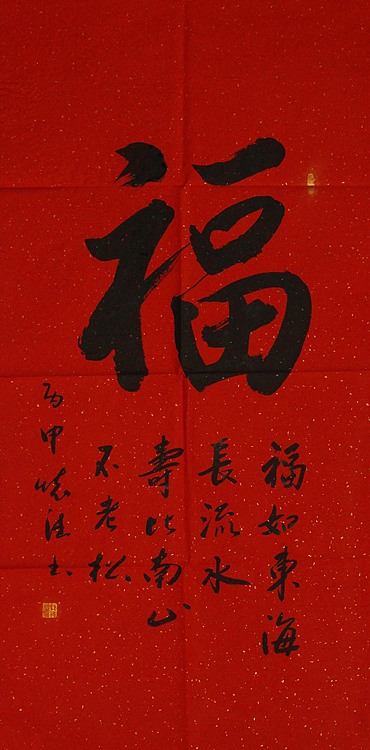 福
福如東海
長流水
壽比南山
不老松
丙申书